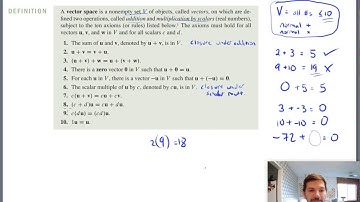 DEFINITION
A vector space is a nonempty set V of objects, called vectors, on which are de-
fined two operations, called addition and multiplication by scalars (real numbers),
subject to the ten axioms (or rules) listed below. The axioms must hold for all
vectors u, v, and w in V and for all scalars c and d.
1. The sum of u and v, denoted by u + v, is in V. closure under addition
2. u + v = v + u.
3. (u + v) + w = u + (v + w).
4. There is a zero vector 0 in V such that u + 0 = u.
5. For each u in V, there is a vector −u in V such that u + (−u) = 0.
6. The scalar multiple of u by c, denoted by cu, is in V. closure under
scalar mult
7. c(u + v) = cu + cv.
8. (c + d)u = cu + du.
9. c(du) = (cd)u.
10. 1u = u.
2(9) = 18
V = all #s ≤ 10
normal +
normal ×
2 + 3 = 5 ✓
9 + 10 = 19 ×
0 + 5 = 5
3 + -3 = 0
10 + -10 = 0
-72 + = 0